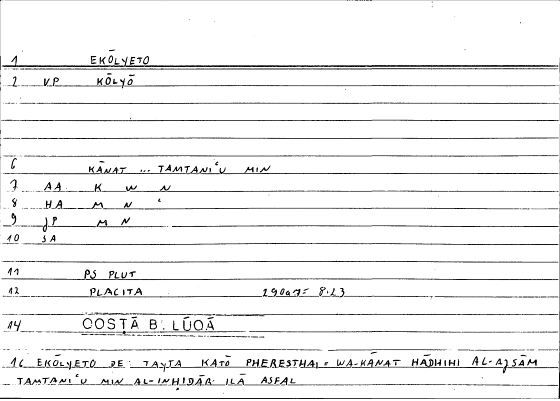 1 EKŌLYETO
2 V.P KŌLYŌ
6 KĀNAT ... TAMTANIʿU MIN
7 AA K W N
8 HA M N ʿ
9 JP M N
10 SA
11 PS PLUT
12 PLACITA 290a7= 8.23
14 COSṬĀ B. LŪQĀ
16 EKŌLYETO DE TAYTA KATŌ PHERESTHAI = WA-KĀNAT HĀDHIHI AL-AJSĀM
TAMTANIʿU MIN AL-INḤIDĀR ILĀ ASFAL